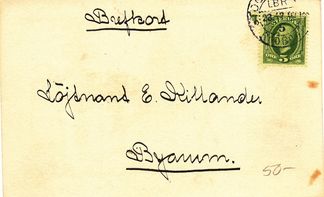 Brefkort
LBR
5
5
Löjtnant E. Killander.
Byarum.
50-